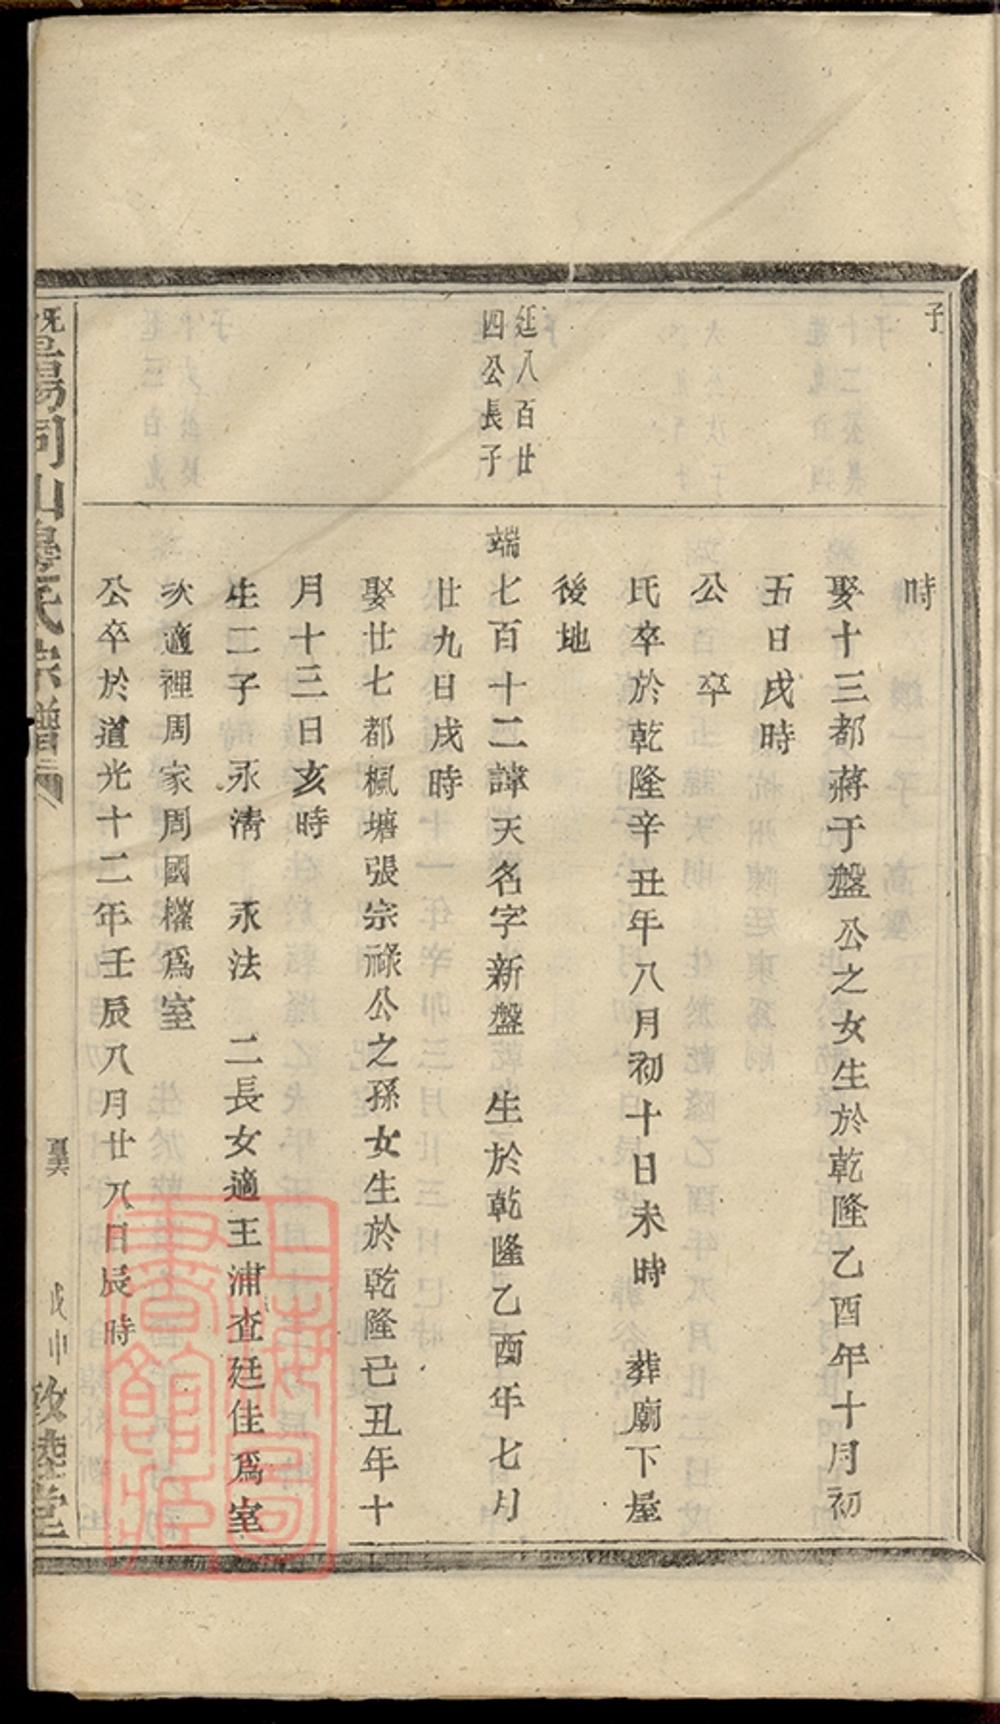 子
時
娶十三都蔣于盤公之女生於乾隆乙酉年十月初
五日戌時
公 卒
氏卒於乾隆辛丑年八月初十日未時 葬廟下屋
後地
廷八百廿
四公長子
端七百十二諱天名字新盤 生於乾隆乙酉年七月
廿九日戌時
娶廿七都楓塘張宗祿公之孫女生於乾隆己丑年十
月十三日亥時
生二子 永清 永法 二長女適王浦查廷佳爲室
次適裡周家周國權爲室
公卒於道光十二年壬辰八月廿八日辰時
暨陽同山邊氏宗譜
戊申
敦睦堂
上海圖書館藏